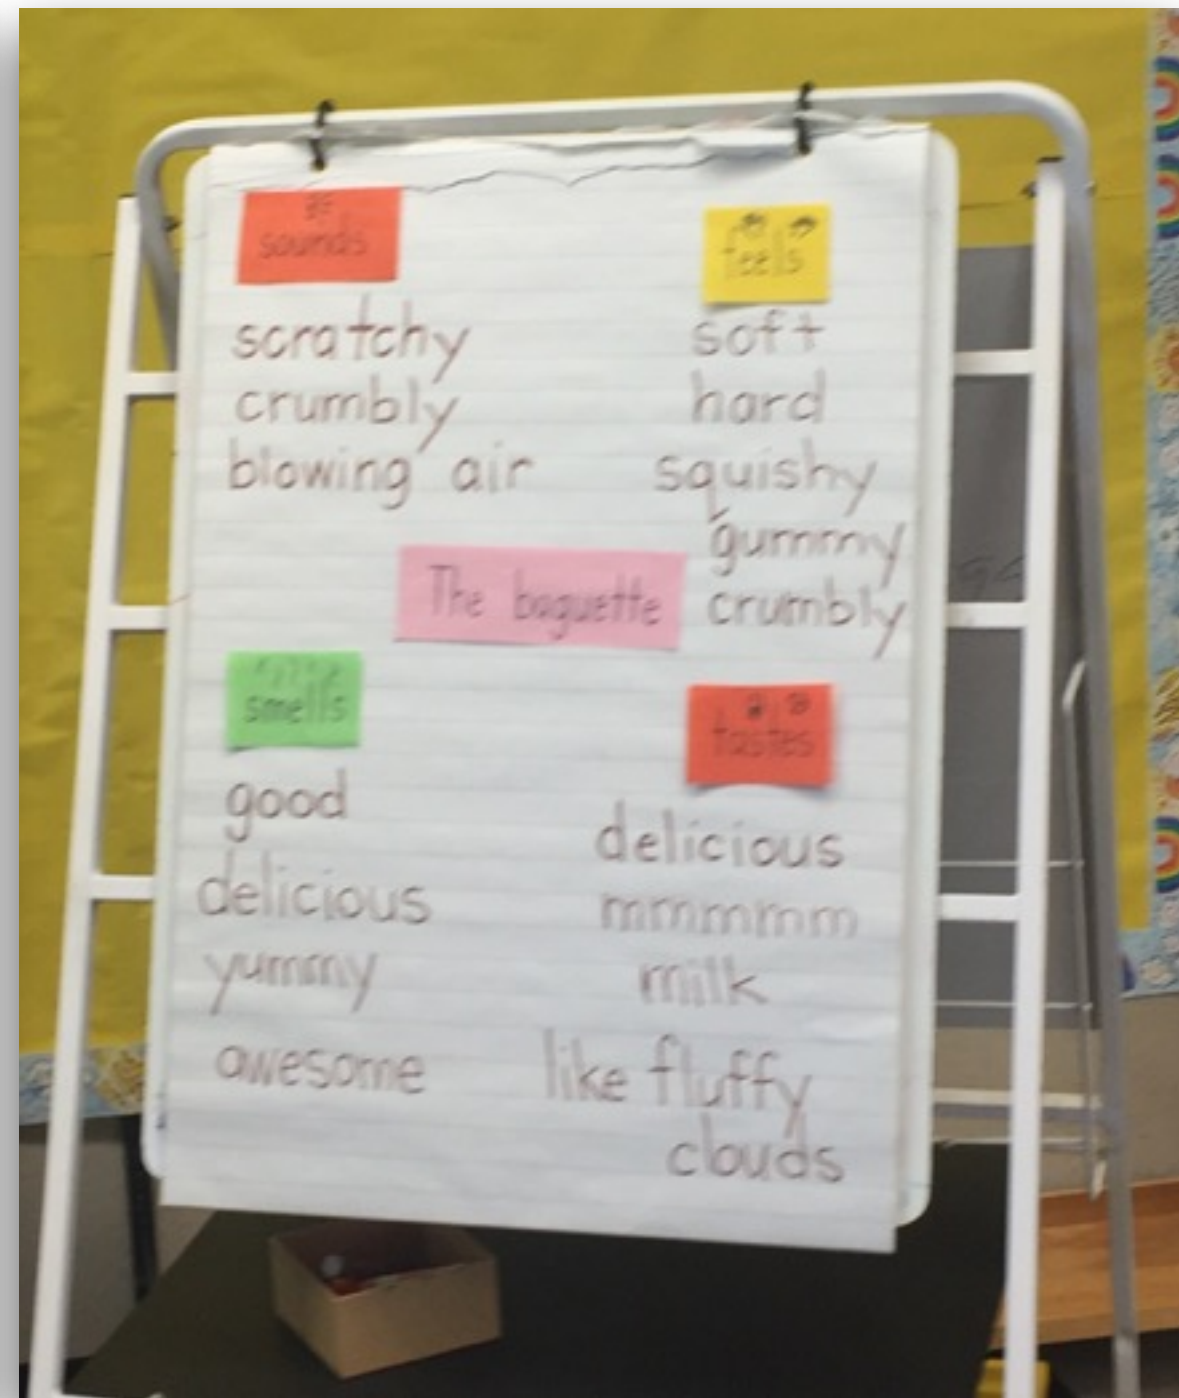 sounds
scratchy
crumbly
blowing air
feels
soft
hard
squishy
gummy
crumbly
The baguette
smells
good
delicious
yummy
awesome
tastes
delicious
mmmmm
milk
like fluffy
clouds